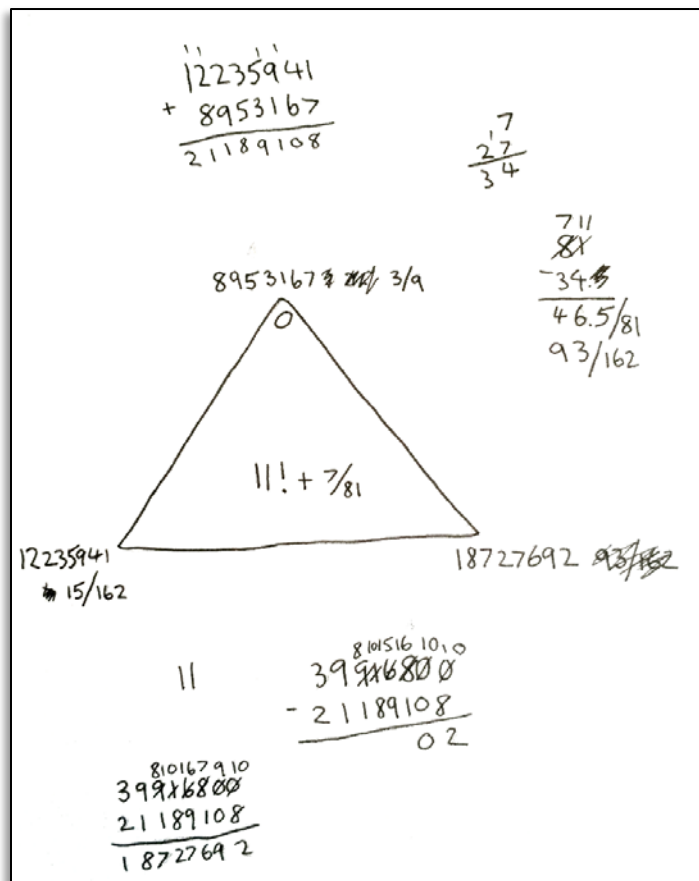 12235941
+ 8953167
21189108
7
27
34
7 11
81
-34.5
46.5/81
93/162
8953167 3/9
0
11! + 7/81
12235941
15/162
18727692 93/162
11
8 10 15 16 10 10
39916800
- 21189108
02
8 10 16 7 9 10
39916800
21189108
18727692